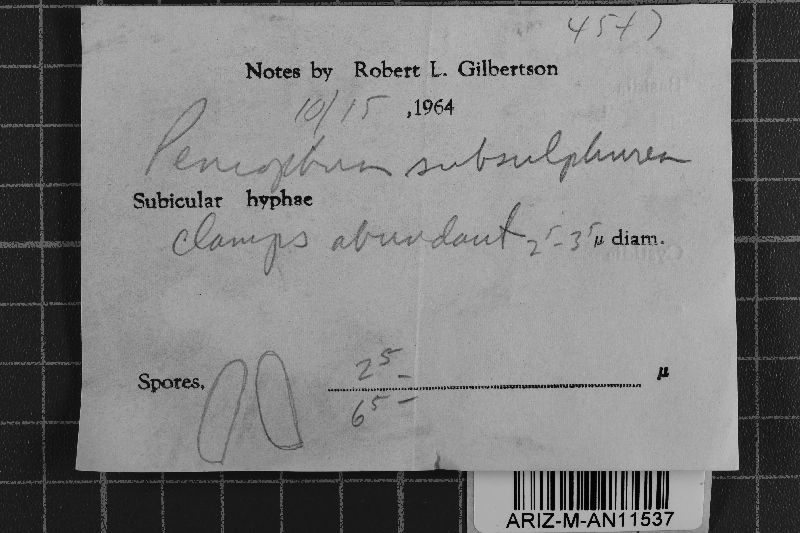 4547
Notes by Robert L. Gilbertson
10/15 ,1964
Peniophora subsulphurea
Subicular hyphae
clamps abundant 2⁵-3⁵ µ diam.
2⁵ –
Spores, µ
6⁵ –
ARIZ-M-AN11537